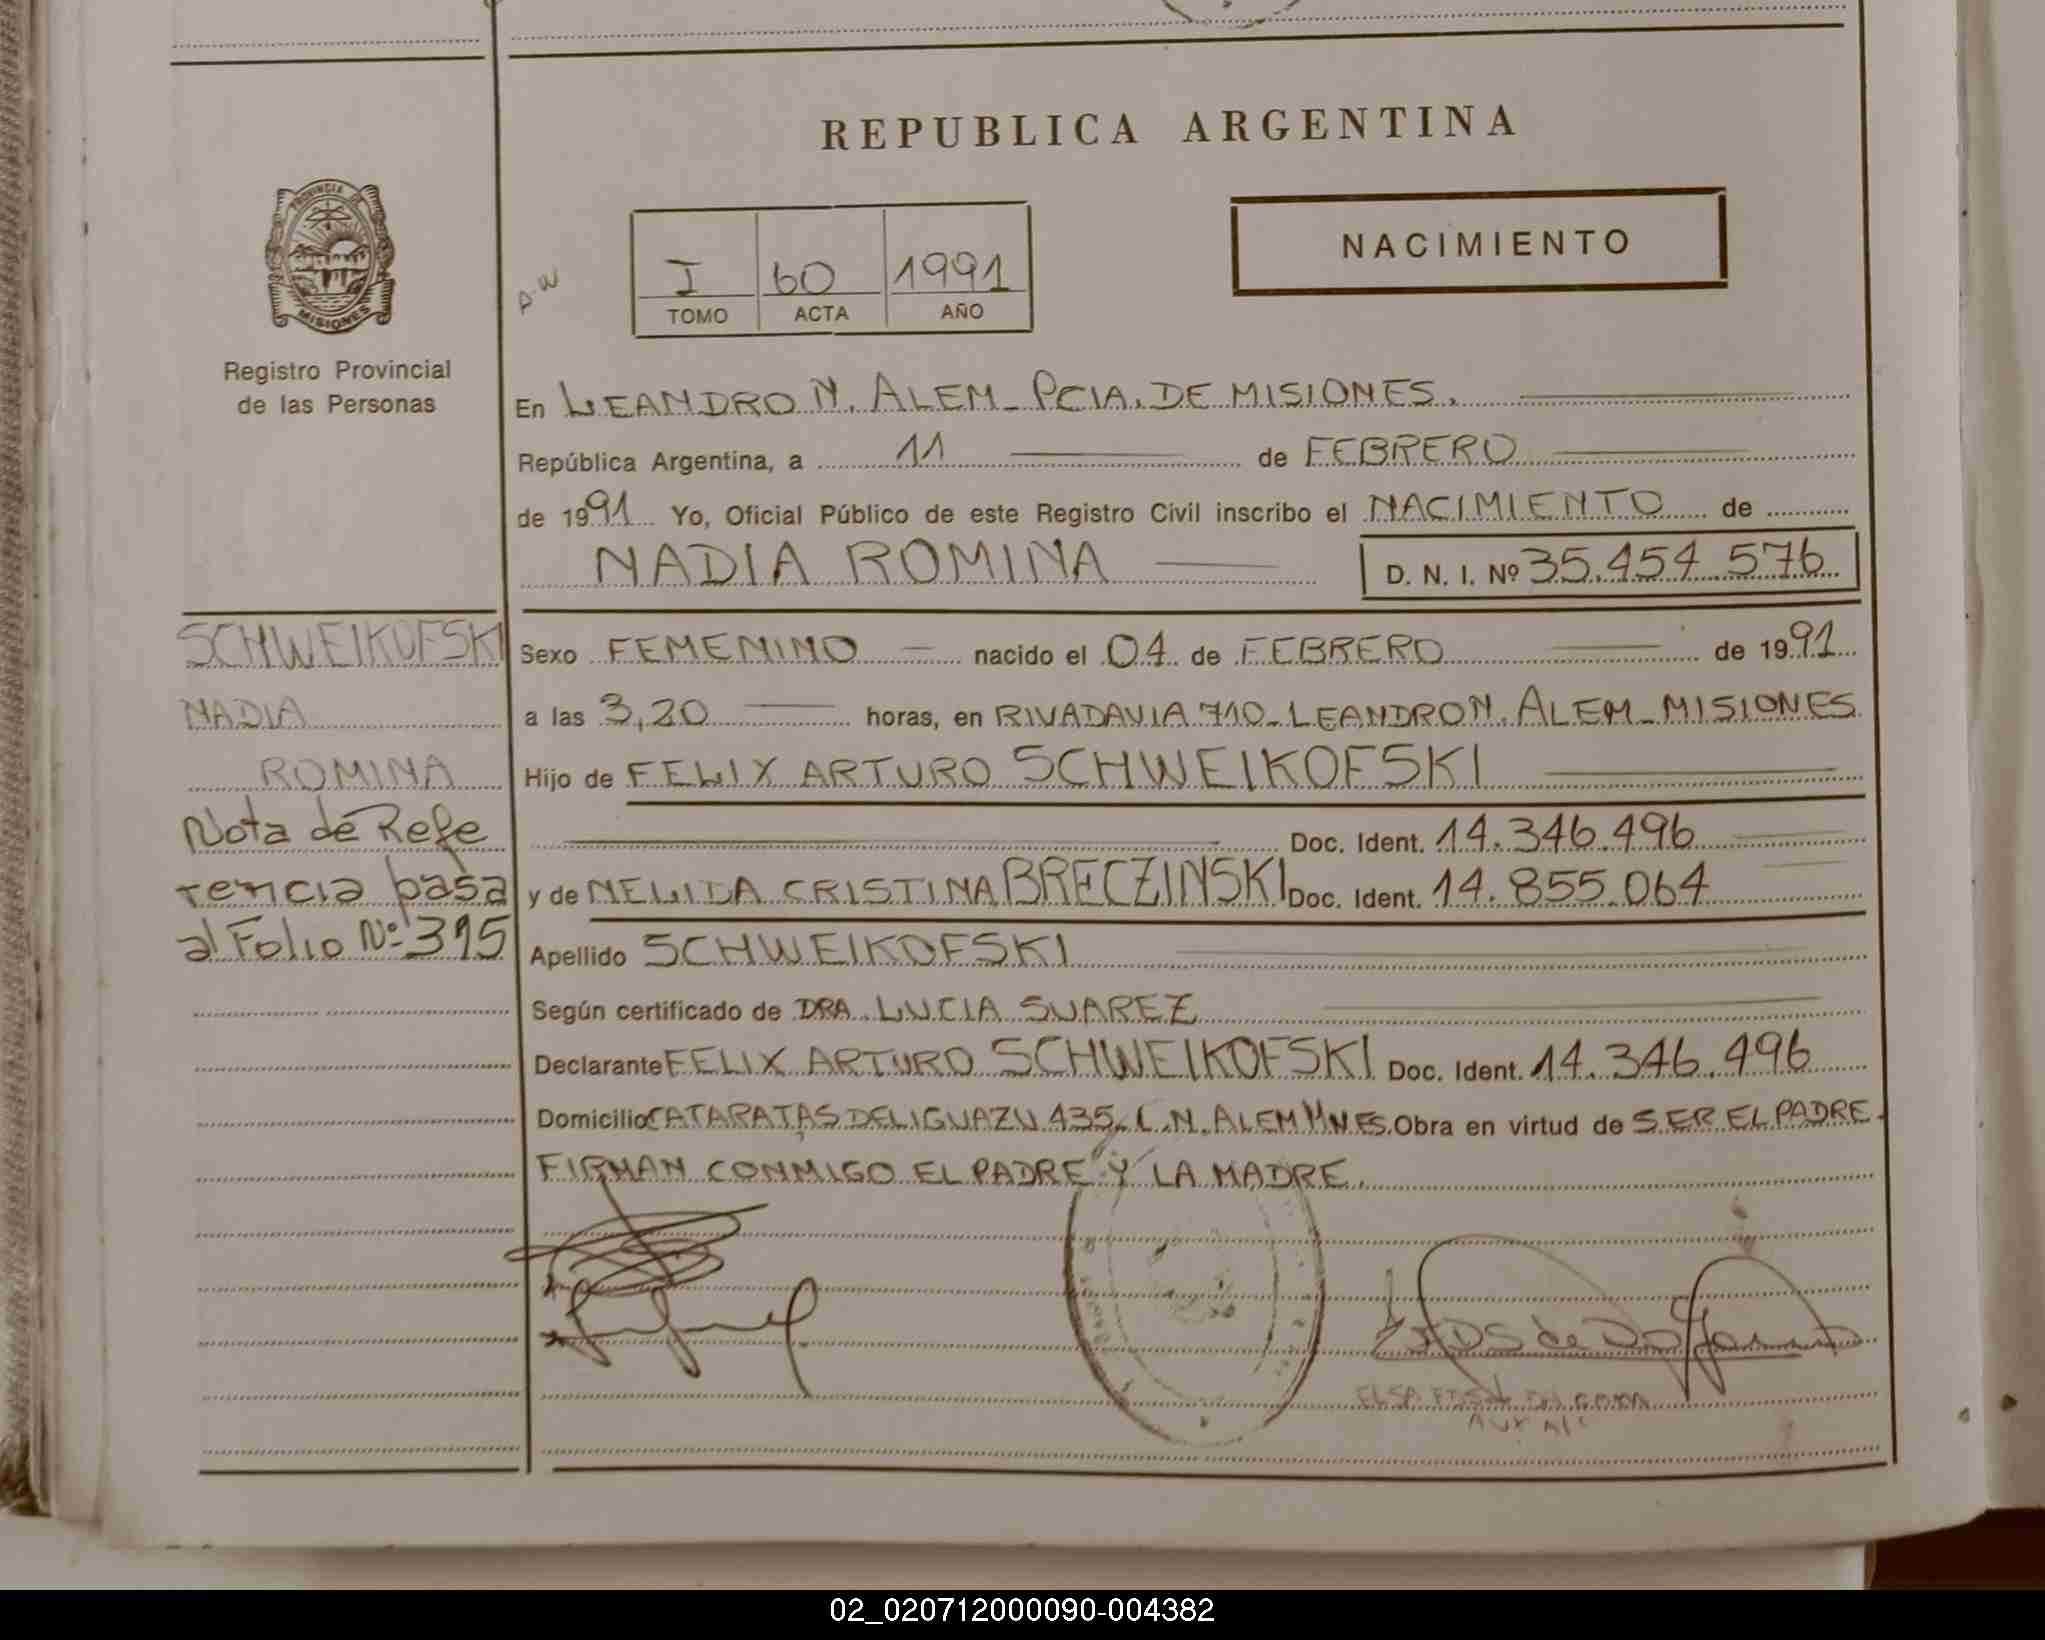 REPUBLICA ARGENTINA
PROVINCIA DE
MISIONES
Registro Provincial
de las Personas
I 60 1991
TOMO ACTA AÑO
NACIMIENTO
En LEANDRO N. ALEM - PCIA. DE MISIONES.
República Argentina, a 11 de FEBRERO
de 1991 Yo, Oficial Público de este Registro Civil inscribo el NACIMIENTO de
NADIA ROMINA D. N. I. Nº 35.454.576
SCHWEIKOFSKI
NADIA
ROMINA
Nota de Refe
rencia pasa
al Folio Nº 395
Sexo FEMENINO nacido el 04 de FEBRERO de 1991
a las 3,20 horas, en RIVADAVIA 710 - LEANDRO N. ALEM - MISIONES
Hijo de FELIX ARTURO SCHWEIKOFSKI
Doc. Ident. 14.346.496
y de NELIDA CRISTINA BRECZINSKI Doc. Ident. 14.855.064
Apellido SCHWEIKOFSKI
Según certificado de DRA. LUCIA SUAREZ
Declarante FELIX ARTURO SCHWEIKOFSKI Doc. Ident. 14.346.496
Domicilio CATARATAS DEL IGUAZU 435 - L.N. ALEM MNES. Obra en virtud de SER EL PADRE.
FIRMAN CONMIGO EL PADRE Y LA MADRE.
02_020712000090-004382